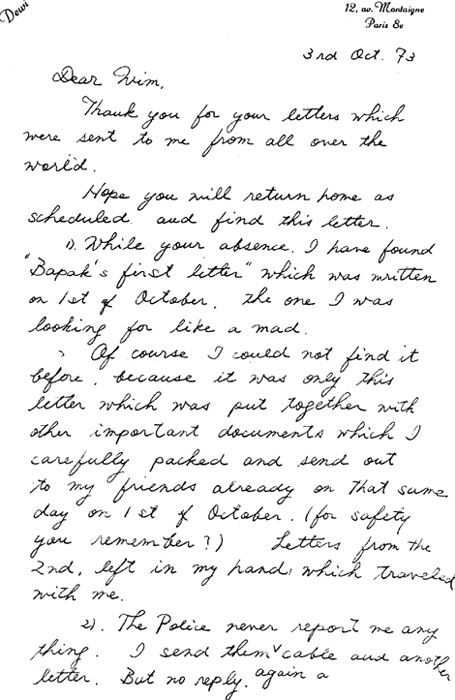 Dewi
12, av. Montaigne
Paris 8e
3rd Oct. 73
Dear Wim,
Thank you for your letters which
were sent to me from all over the
world.
Hope you will return home as
scheduled and find this letter.
1). While your absence. I have found
"Bapak's first letter" which was written
on 1st of October, the one I was
looking for like a mad.
Of course I could not find it
before, because it was only this
letter which was put together with
other important documents which I
carefully packed and send out
to my friends already on that same
day on 1st of October. (for safety
you remember?) Letters from the
2nd, left in my hand, which traveled
with me.
2). The Police never report me any
thing. I send them cable and another
letter. But no reply. again a